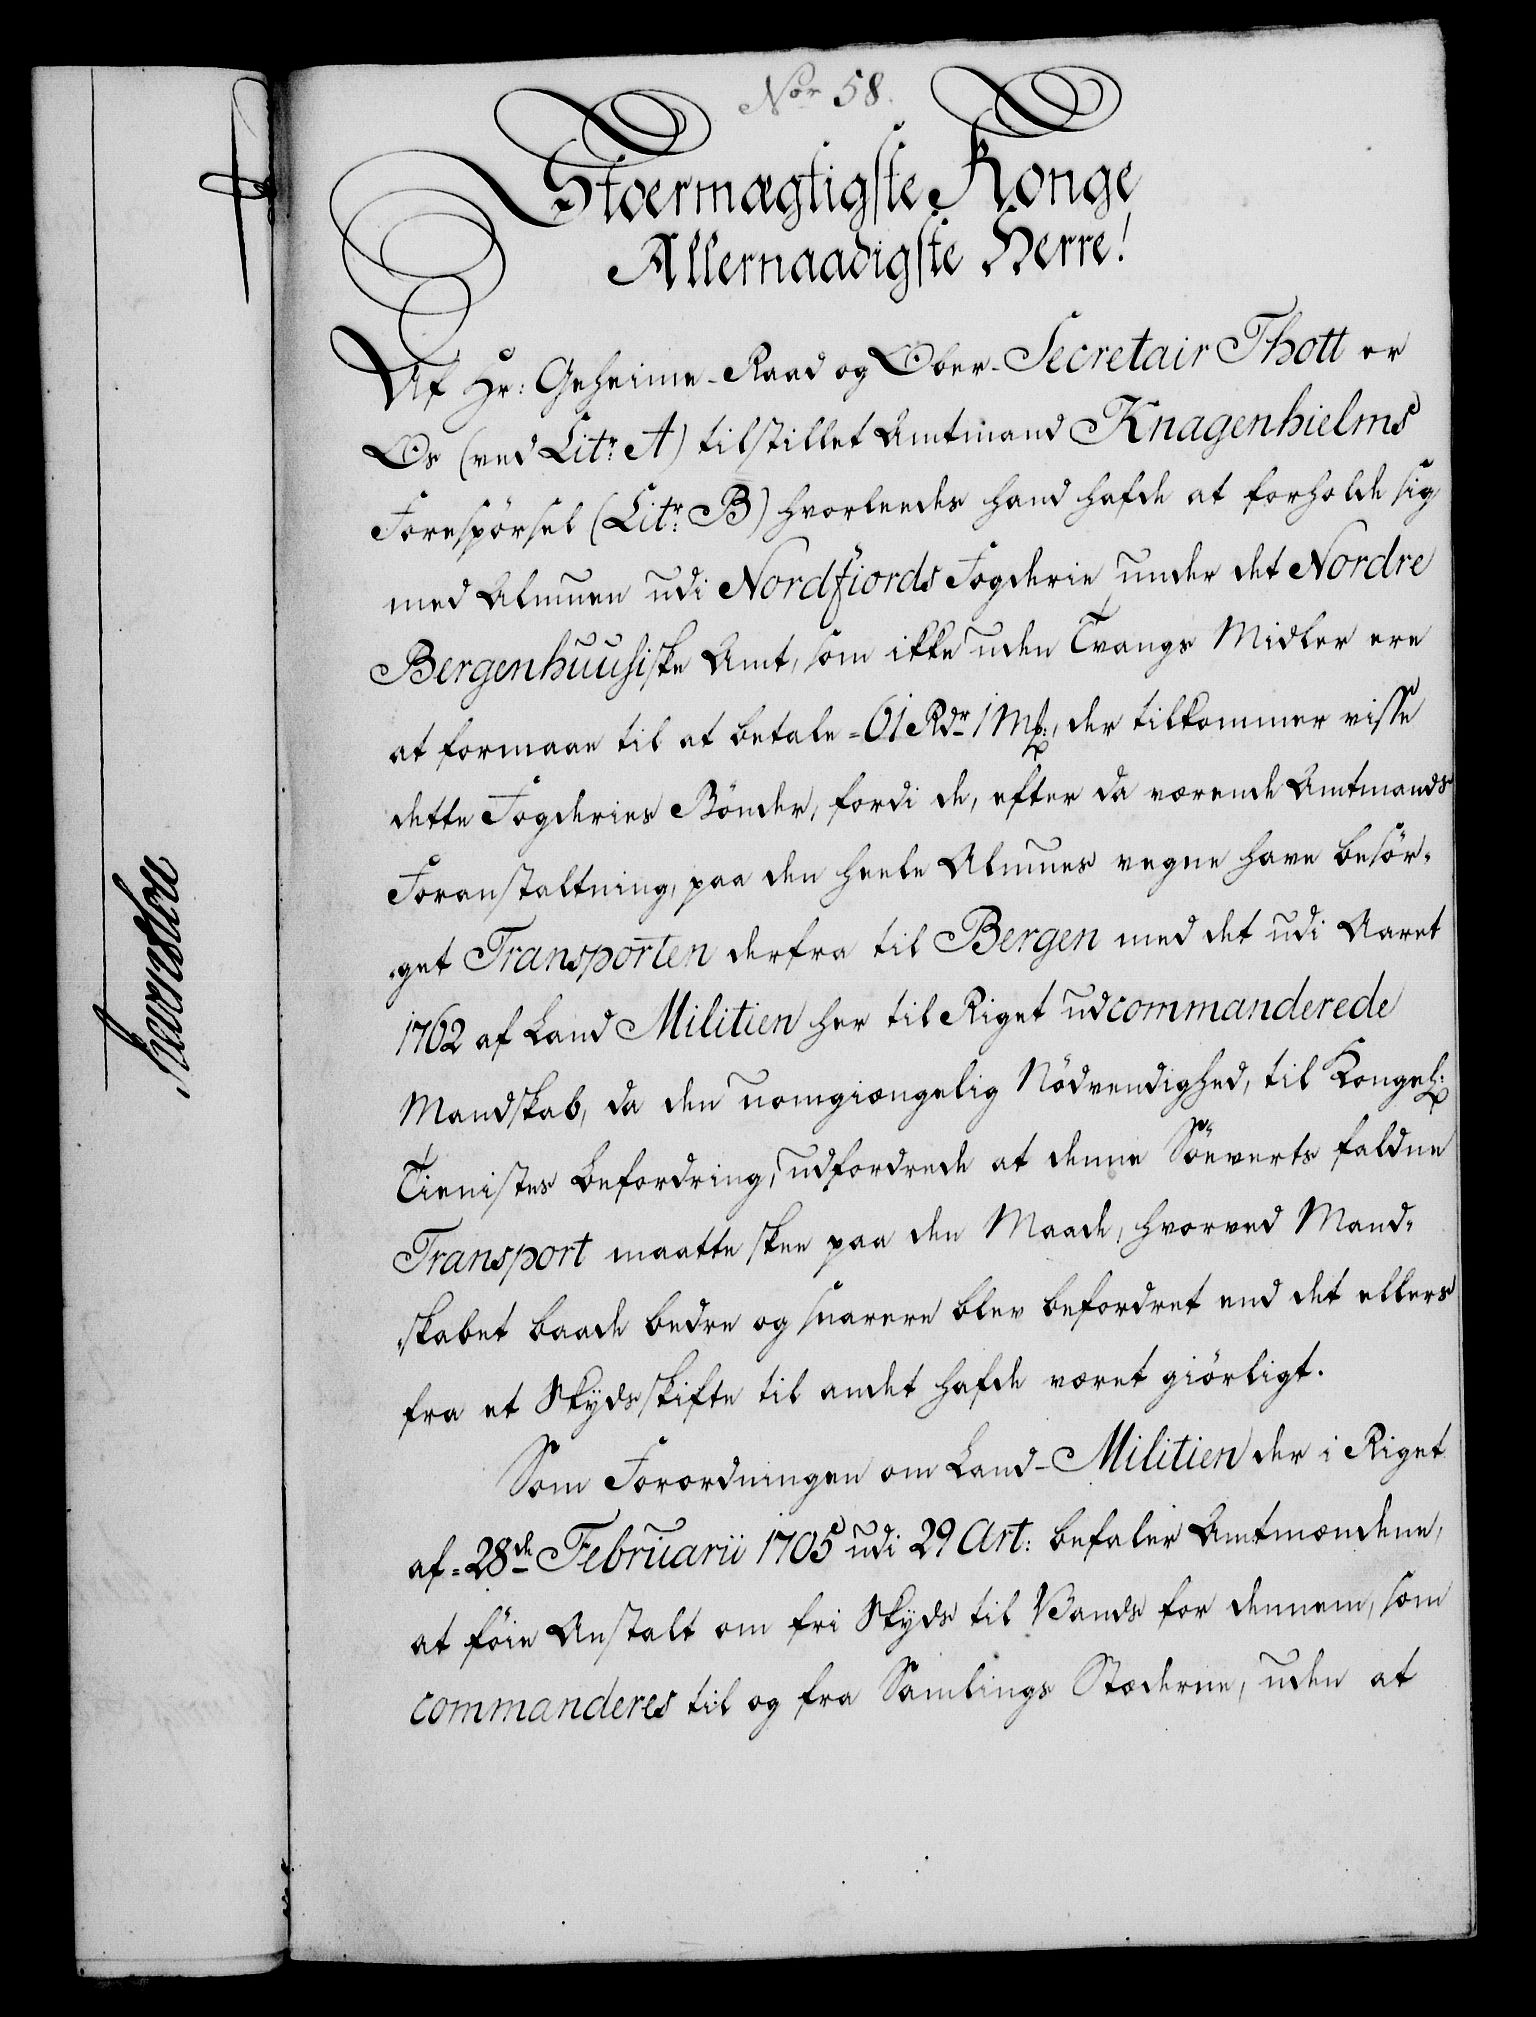 Nor 58.
Stoermægtigste Konge
Allernaadigste Herre!
Af Hr: Geheime-Raad og Ober-Secretair Thott er
Os (ved Litr: A) tilstillet Amtmand Knagenhielms
Forespörsel (Litr: B) hvorleedes hand hafde at forholde sig
med Almuen udi Nordfiords Fogderie under det Nordre
Bergenhuusiske Amt, som ikke uden Tvangs Midler ere
at formaae til at betale = 61 Rdr 1 Mk:, der tilkommer visse
dette Fogderies Bönder, fordi de, efter da værende Amtmands
Foranstaltning, paa den heele Almues vegne have besör-
get Transporten derfra til Bergen med det udi Aaret
1762 af Land Militien her til Riget udcommanderede
Mandskab, da den uomgiængelig Nödvendighed, til Kongel:
Tienistes Befordring, udfordrede at denne Söeverts faldne
Transport maatte skee paa den Maade, hvorved Mand-
skabet baade bedre og snarere blev befordret end det ellers
fra et Skydsskifte til andet hafde været giörligt.
Som Forordningen om Land-Militien der i Riget
af = 28de Februarii 1705 udi 29 Art: befaler Amtmændene,
at föie Anstalt om fri Skyds til Vands for dennem, som
commanderes til og fra Samlings Stæderne, uden at